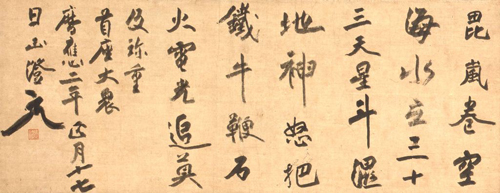 毘嵐卷空
海水立三十
三天星斗濕
地神怒把
鐵牛鞭石
火電光追莫
及珍重
首座大衆
曆應二年正月十七
日山澄